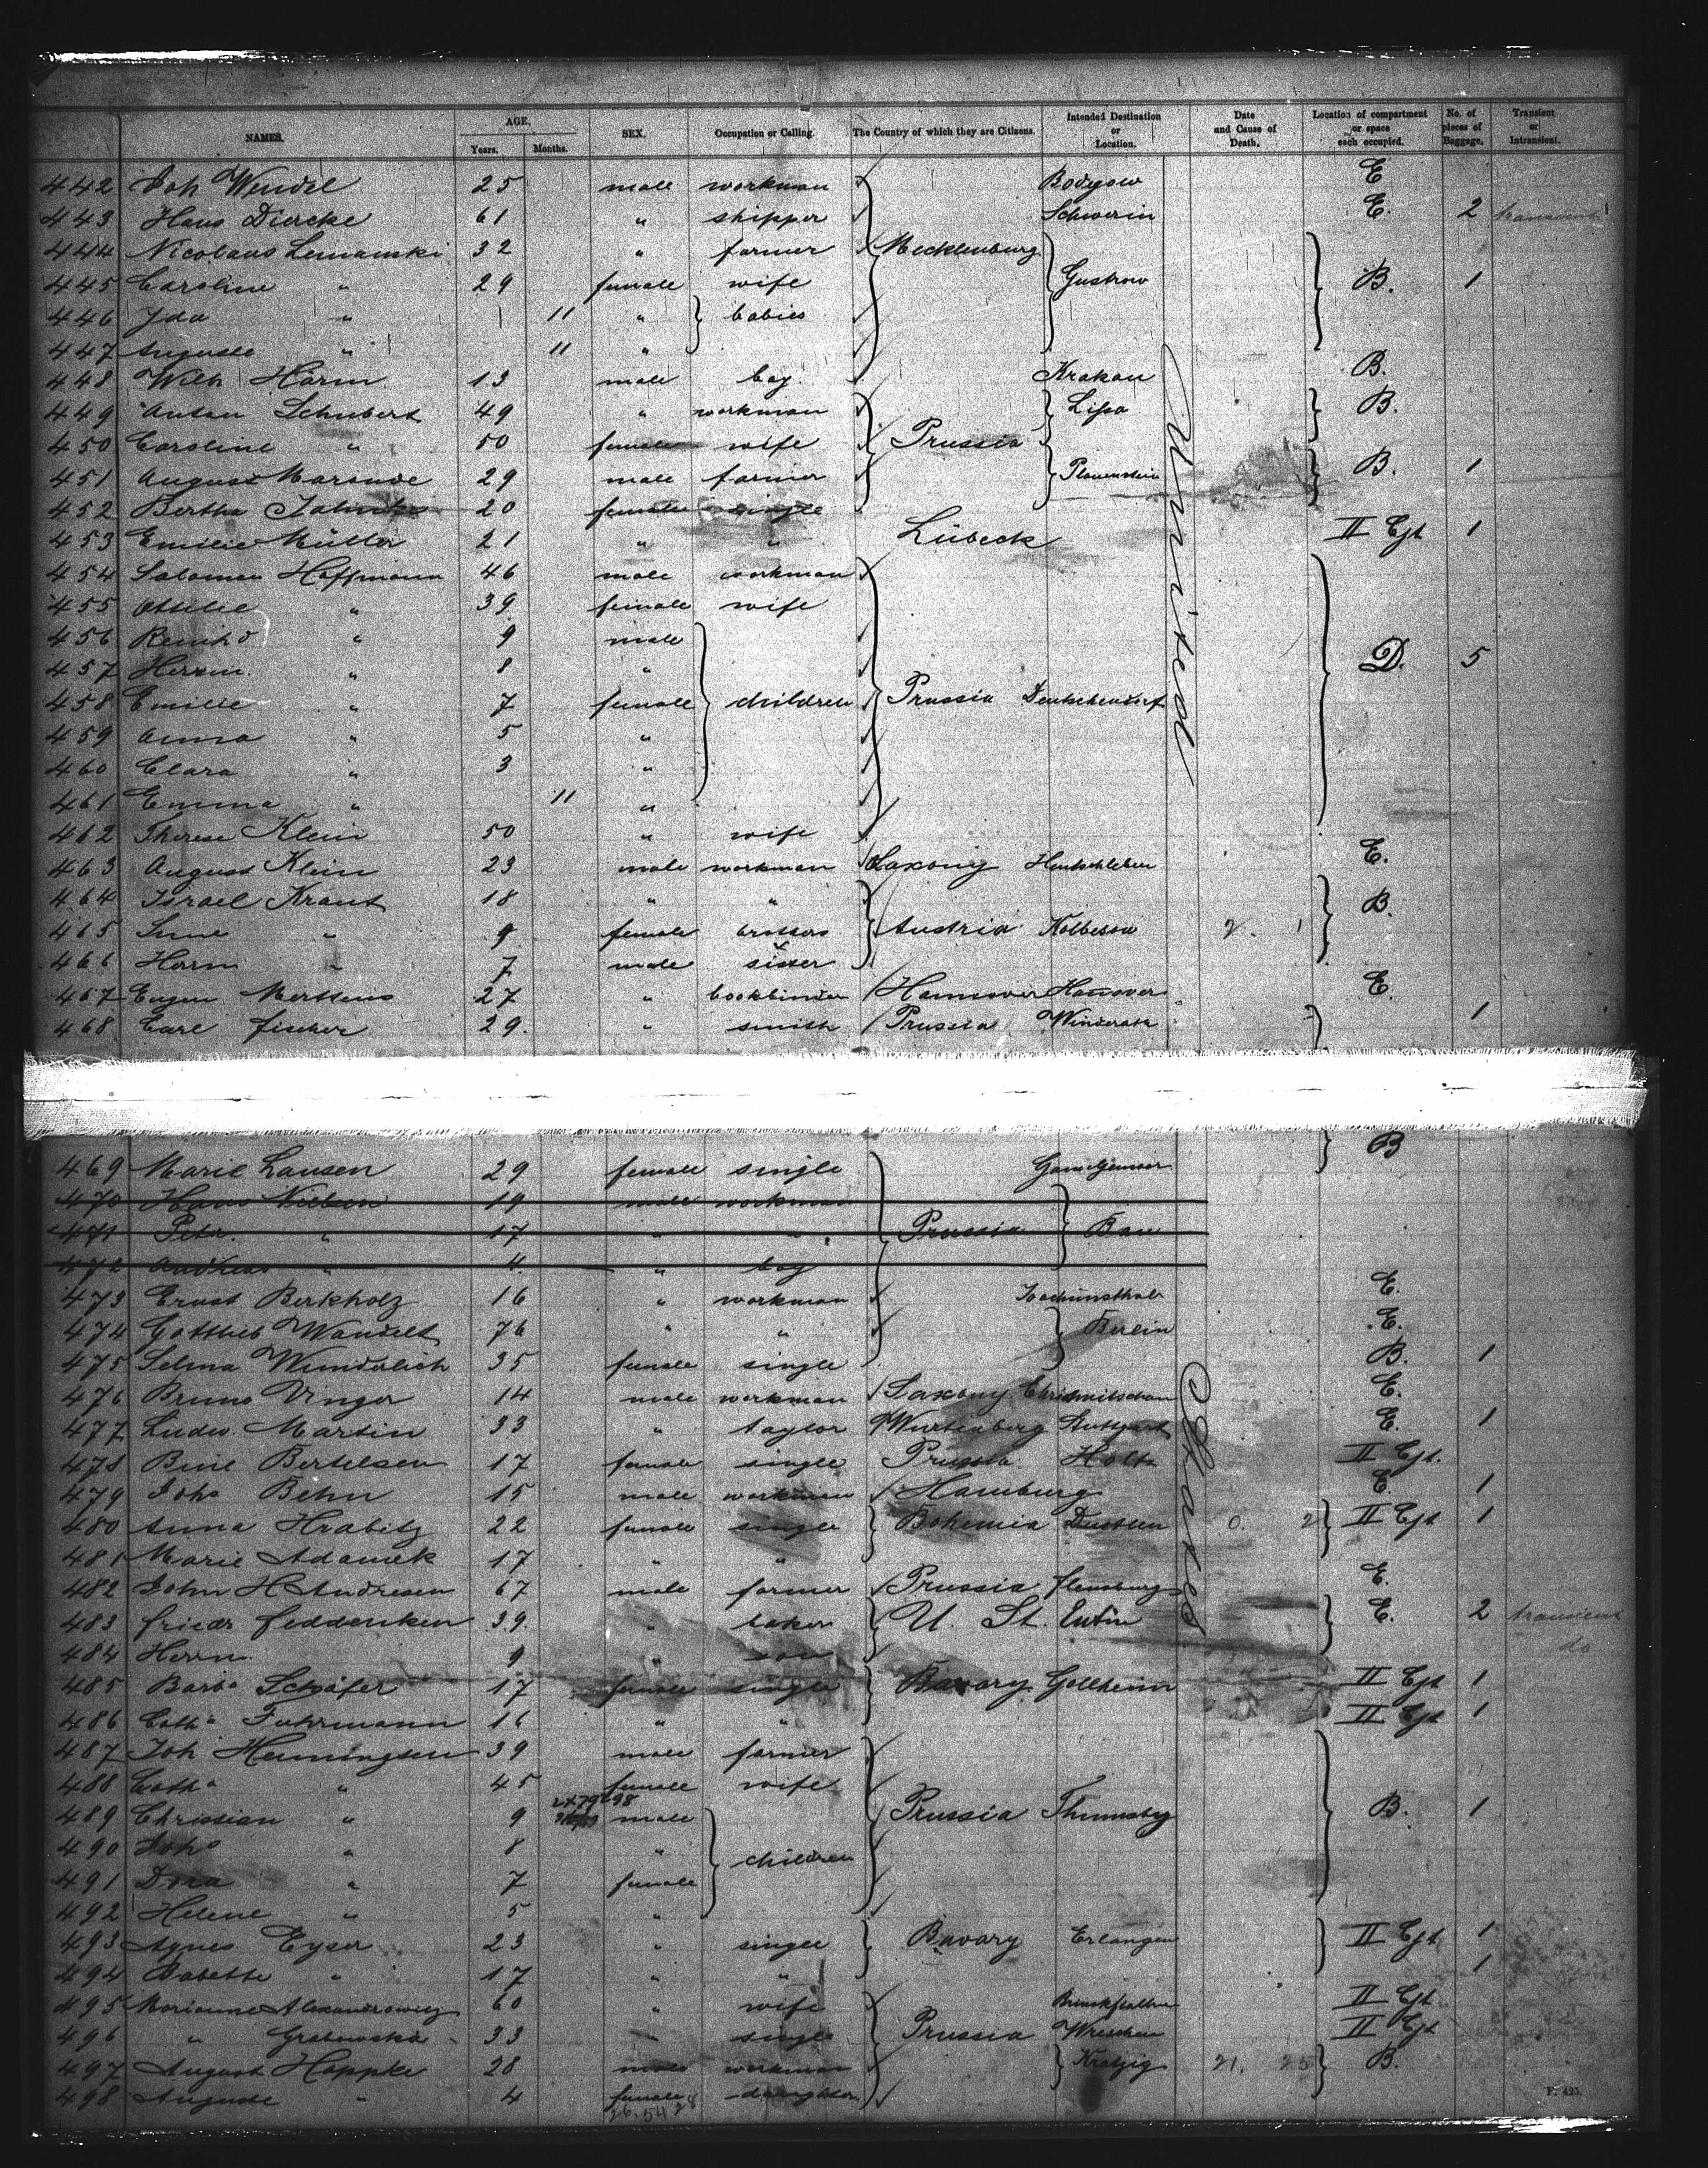 NAMES. AGE. Years. Months. SEX. Occupation or Calling. The Country of which they are Citizens. Intended Destination or Location. Date and Cause of Death. Location of compartment or space each occupied. No. of pieces of Baggage. Transient or Intransient.
442 Joh Wendel 25 male workman E
443 Hans Diercke 61 " shipper Schwerin E. 2 transient
444 Nicolaus Lemanski 32 " farmer Mecklenburg
445 Caroline " 29 female wife Gustrow B. 1
446 Ida " 11 " babies
447 Auguste " 11 "
448 Wilh Harm 13 male boy Krakau B.
449 Anton Schubert 49 " workman Lissa B.
450 Caroline " 50 female wife Prussia
451 August 29 male farmer B. 1
452 Bertha 20 female single
453 Emilie Müller 21 " " Lübeck II Cjt 1
454 Salomon Hoffmann 46 male workman
455 Ottilie " 39 female wife
456 Reinhd " 9 male
457 Herrm. " 8 " D. 5
458 Emilie " 7 female children Prussia
459 Anna " 5 "
460 Clara " 3 "
461 Emma " 11 "
462 Therese Klein 50 " wife
463 August Klein 23 male workman Saxony E.
464 Israel Kraut 18 " " B.
465 " 9 female brothers Austria 2. 1
466 Herm " 7 male & sister
467 Eugen Mertens 27 " bookbinder Hannover Hanover E.
468 Carl Fischer 29. " smith Prussia 1
United
B
469 Marie Lausen 29 female single
470 Hans Nielsen 19 male workman
471 Petr. " 17 " " Prussia Bau
472 Andreas " 4 " boy
473 Ernst Berkholz 16 " workman Joachimsthal E.
474 Gottlieb Wandelt 76 " " Berlin E.
475 Selma Wunderlich 35 female single B. 1
476 Bruno Vinger 14 male workman Saxony E.
477 Ludw. Martin 33 " taylor Wurtenberg Stuttgart E. 1
478 Bine Bertelsen 17 female single Prussia II Cjt.
479 Johs Behn 15 male workman Hamburg E. 1
480 Anna Hrabitz 22 female single Bohemia 0. 2 II Cjt 1
481 Marie Adamek 17 " "
482 John H Andresen 67 male farmer Prussia Flensburg E.
483 Friedr Feddersen 39. " baker U. St. Eutin E. 2 transient
484 Herm. 9 " son do
485 Barba Schäfer 17 female single Bavary Gollheim II Cjt 1
486 Catha Fuhrmann 16 " " II Cjt 1
487 Joh Henningsen 39 male farmer
488 Catha " 45 female wife
489 Christian " 9 male Prussia B. 1
490 Joh " 8 " children
491 Dora " 7 female
492 Helene " 5 "
493 Agnes Eyser 23 " single Bavary Erlangen II Cjt 1
494 Babette " 17 " " 1
495 Marianne Alexandrowicz 60 " wife II Cjt
496 " Grabowska 33 " single Prussia Wreschen II Cjt
497 August Hoppke 28 male workman 21. 25 B.
498 Auguste " 4 female daughter
States
F. 425.